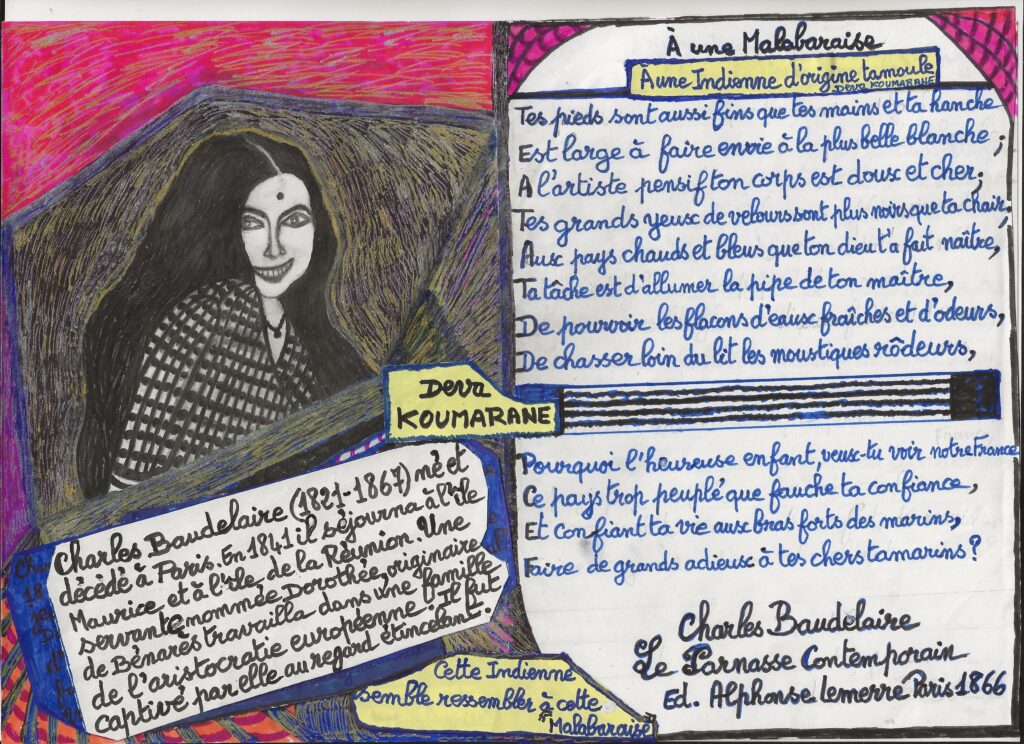 À une Malabaraise
À une Indienne d'origine tamoule
Deva KOUMARANE
Tes pieds sont aussi fins que tes mains et ta hanche
Est large à faire envie à la plus belle blanche ;
A l'artiste pensif ton corps est doux et cher ;
Tes grands yeux de velours sont plus noirs que ta chair ;
Aux pays chauds et bleus que ton dieu t'a fait naître,
Ta tâche est d'allumer la pipe de ton maître,
De pourvoir les flacons d'eaux fraîches et d'odeurs,
De chasser loin du lit les moustiques rôdeurs,
Deva
KOUMARANE
Pourquoi l'heureuse enfant, veux-tu voir notre France
Ce pays trop peuplé que fauche ta confiance,
Et confiant ta vie aux bras forts des marins,
Faire de grands adieux à tes chers tamarins ?
Charles Baudelaire
Le Parnasse Contemporain
Ed. Alphonse Lemerre Paris 1866
Charles Baudelaire (1821-1867) né et
décédé à Paris. En 1841 il séjourna à l'île
Maurice et à l'île de la Réunion. Une
servante nommée Dorothée, originaire
de Bénarès travailla dans une famille
de l'aristocratie européenne. Il fut
captivé par elle au regard étincelant.
Cette Indienne
semble ressembler à cette
"Malabaraise"